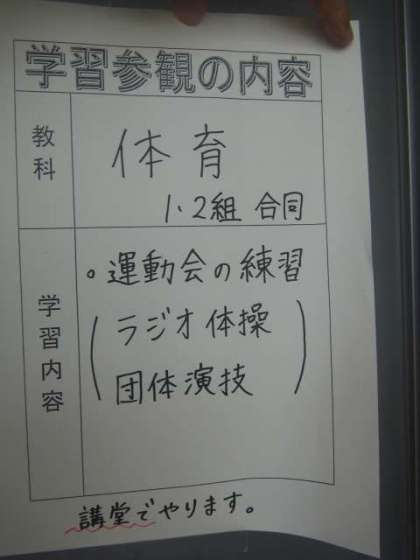 学習参観の内容
教科
体育
1・2組 合同
学習内容
。運動会の練習
(ラジオ体操
団体演技)
講堂でやります。